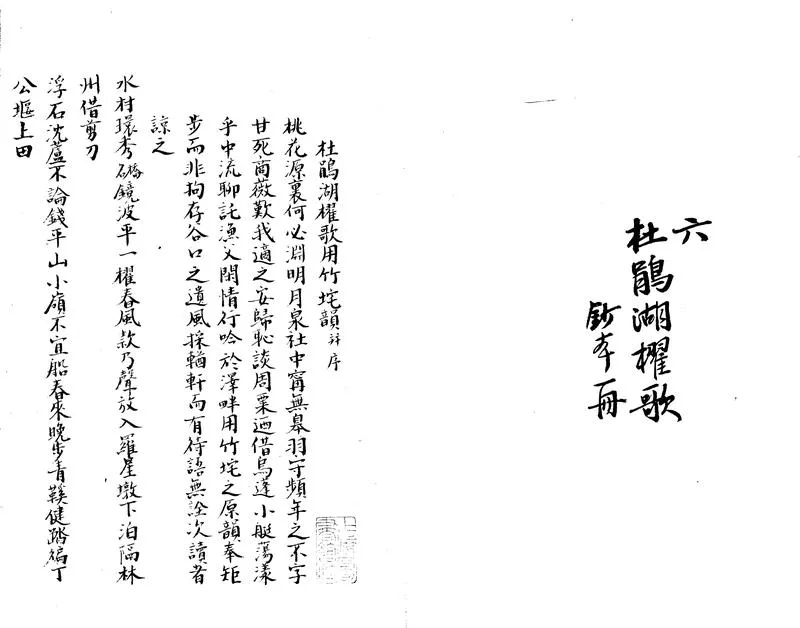 六
杜鵑湖櫂歌
鈔本一冊
杜鵑湖櫂歌用竹垞韻并序
桃花源裏何必淵明月泉社中甯無皋羽守頻年之不字
甘死商薇歎我適之安歸恥談周粟迺借烏篷小艇蕩漾
乎中流聊託漁父閒情行吟於澤畔用竹垞之原韻奉矩
步而非拘存谷口之遺風採輶軒而有待語無詮次讀者
諒之
水村環秀鏡波平一櫂春風欸乃聲放入羅星墩下泊隔林
州借剪刀
浮石沈蘆不論錢平山小嶺不宜船春來晚步青鞵健踏徧丁
公堰上田